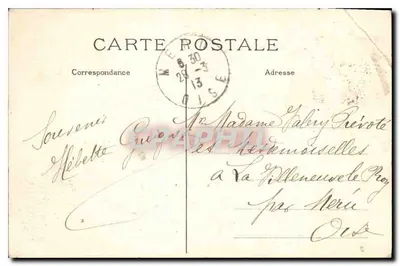 CARTE POSTALE
Correspondance
Adresse
MERU
8 30
29 -3
13
OISE
Souvenir
Hébette Guizot
Mr Madame Valery Prévoté
et Mesdemoiselles
à La Villeneuve le Roy
par Méru
Oise